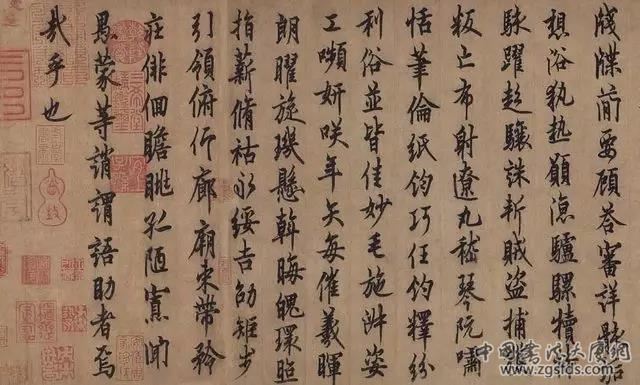 牋牒蕳要顧荅審詳骸垢
想浴執熱願凉驢騾犢
駭躍超驤誅斬賊盜捕
叛亡布射遼丸嵇琴阮嘯
恬筆倫紙鈞巧任釣釋紛
利俗並皆佳妙毛施淑姿
工嚬妍咲年矢每催羲暉
朗曜旋璣懸斡晦魄環照
指薪脩祜永綏吉劭矩步
引領俯仰廊廟束帶矜
莊俳佪瞻眺孤陋寡聞
愚蒙等誚謂語助者焉
哉乎也
www.zgsfds.com